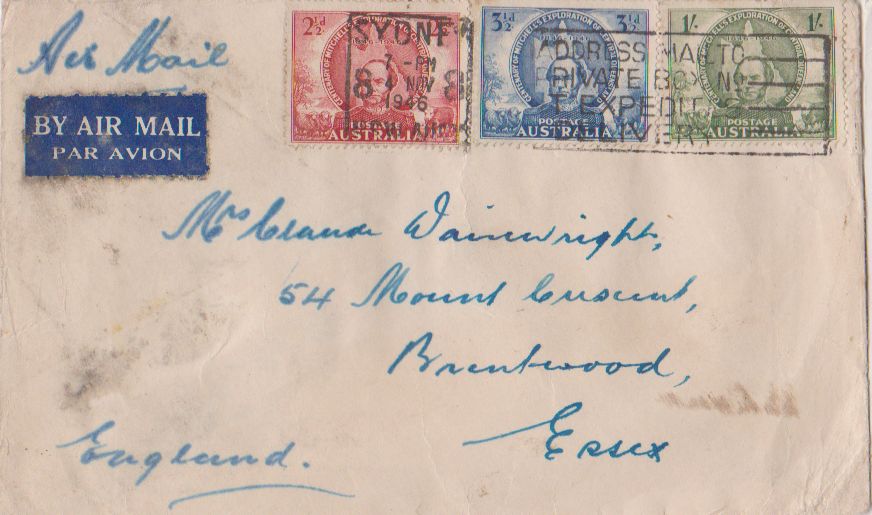 Air Mail
BY AIR MAIL
PAR AVION
2½d
CENTENARY OF MITCHELL'S EXPLORATION OF CENTRAL QUEENSLAND
POSTAGE
AUSTRALIA
3½d 3½d
CENTENARY OF MITCHELL'S EXPLORATION OF CENTRAL QUEENSLAND
POSTAGE
AUSTRALIA
1/- 1/-
MITCHELL'S EXPLORATION OF CENTRAL QUEENSLAND
POSTAGE
AUSTRALIA
SYDNE
7 -PM
8 4 NOV 8
1946
ADDRESS MAIL TO
PRIVATE BOX NO
T EXPEDITES
DELIVERY
Mrs Claude Wainwright,
54 Mount Crescent,
Brentwood,
Essex
England.